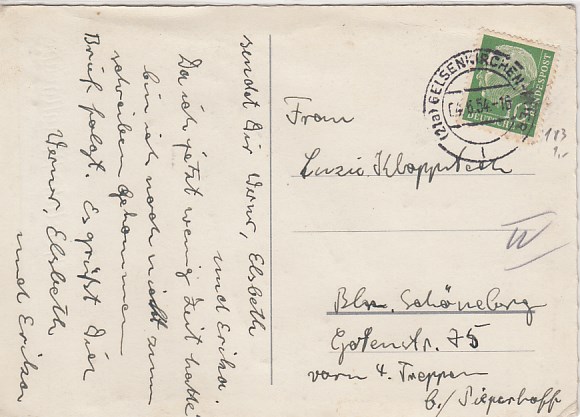 sendet Dir Werner, Elsbeth
und Erika.
Da ich jetzt wenig Zeit hatte
bin ich noch nicht zum
schreiben gekommen
Brief folgt. Es grüßt Dir
Werner, Elsbeth
und Erika
(21a) GELSENKIRCHEN
-6.54-16
DEUTSCHE BUNDESPOST
10
183
1,-
Frau
Luzie Kloppstech
IV
Bln. Schöneberg
Gotenstr. 75
vorn 4. Treppen
b./ Pieperhoff